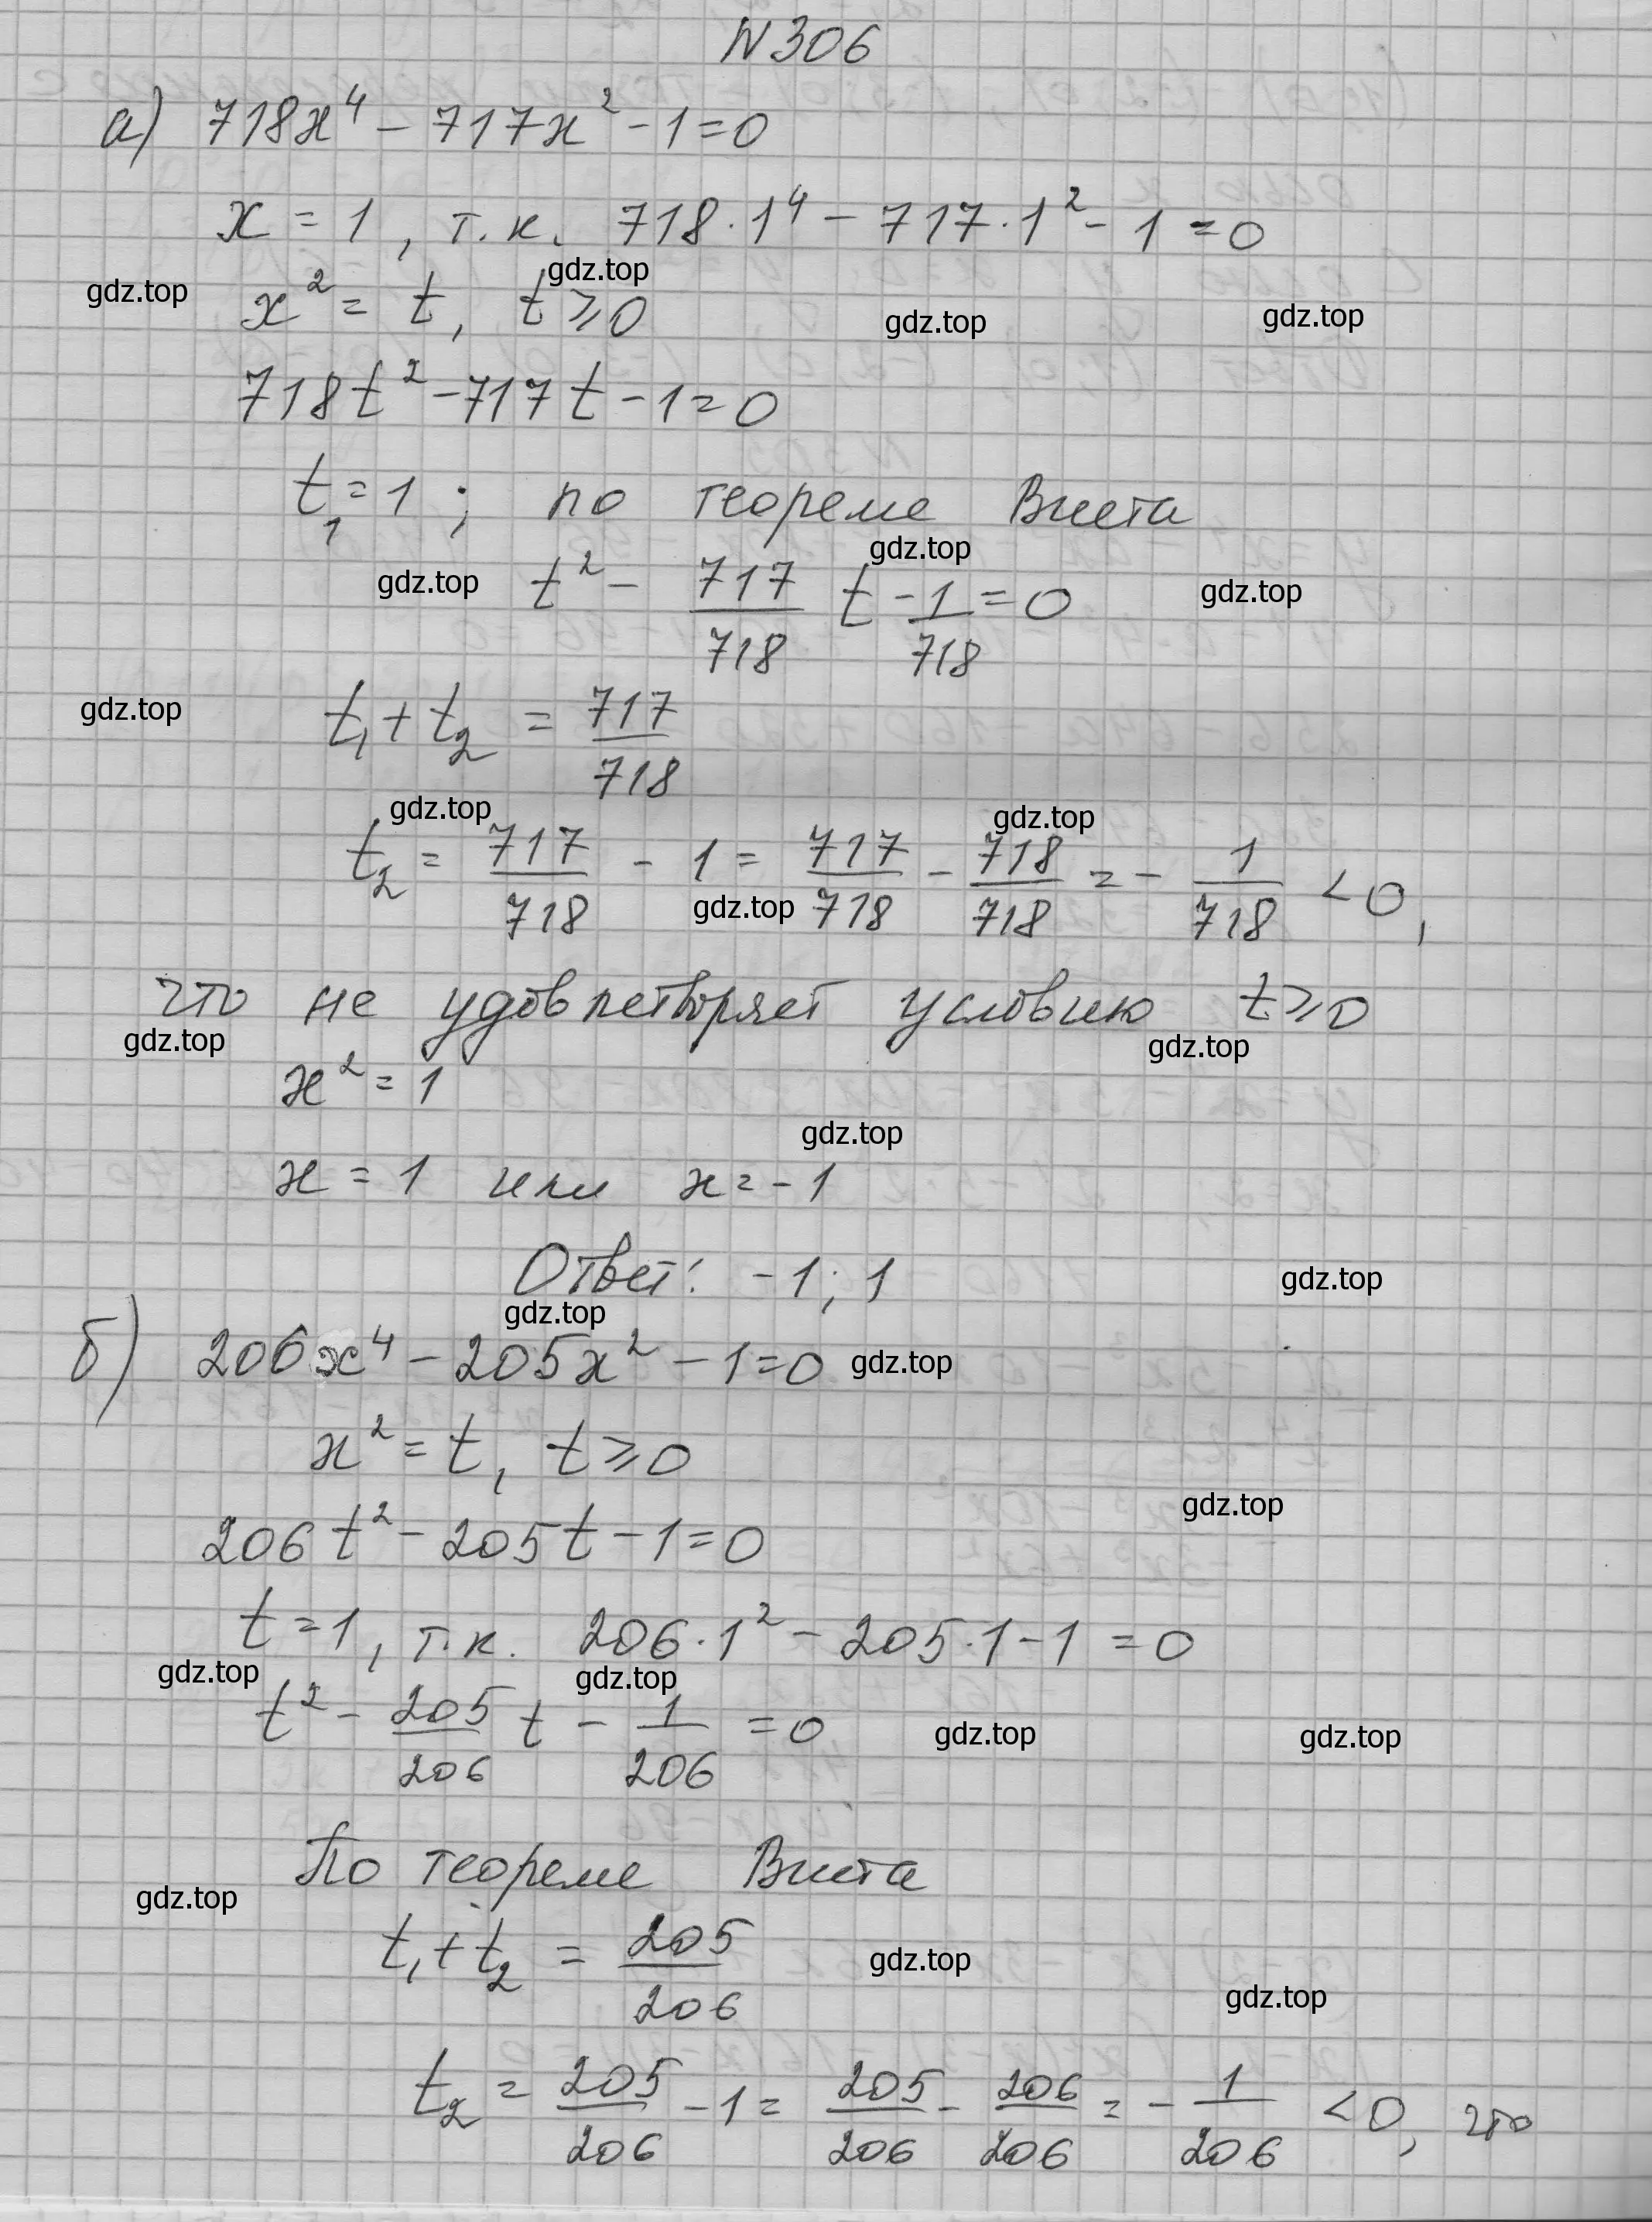 N306
а) 718x⁴ - 717x² - 1 = 0
x = 1, т.к. 718·1⁴ - 717·1² - 1 = 0
gdz.top
gdz.top x² = t, t ≥ 0 gdz.top gdz.top
718t² - 717t - 1 = 0
t₁ = 1; по теореме Виета
gdz.top
gdz.top t² - 717/718 t - 1/718 = 0 gdz.top
gdz.top t₁ + t₂ = 717/718
gdz.top gdz.top
t₂ = 717/718 - 1 = 717/718 - 718/718 = - 1/718 < 0,
gdz.top
что не удовлетворяет условию t ≥ 0
gdz.top gdz.top
x² = 1
gdz.top
x = 1 или x = -1
Ответ: -1; 1 gdz.top
gdz.top
б) 206x⁴ - 205x² - 1 = 0 gdz.top
x² = t, t ≥ 0
gdz.top
206t² - 205t - 1 = 0
t = 1, т.к. 206·1² - 205·1 - 1 = 0
gdz.top gdz.top
t² - 205/206 t - 1/206 = 0 gdz.top gdz.top
По теореме Виета
gdz.top
t₁ + t₂ = 205/206 gdz.top
gdz.top
t₂ = 205/206 - 1 = 205/206 - 206/206 = - 1/206 < 0, что